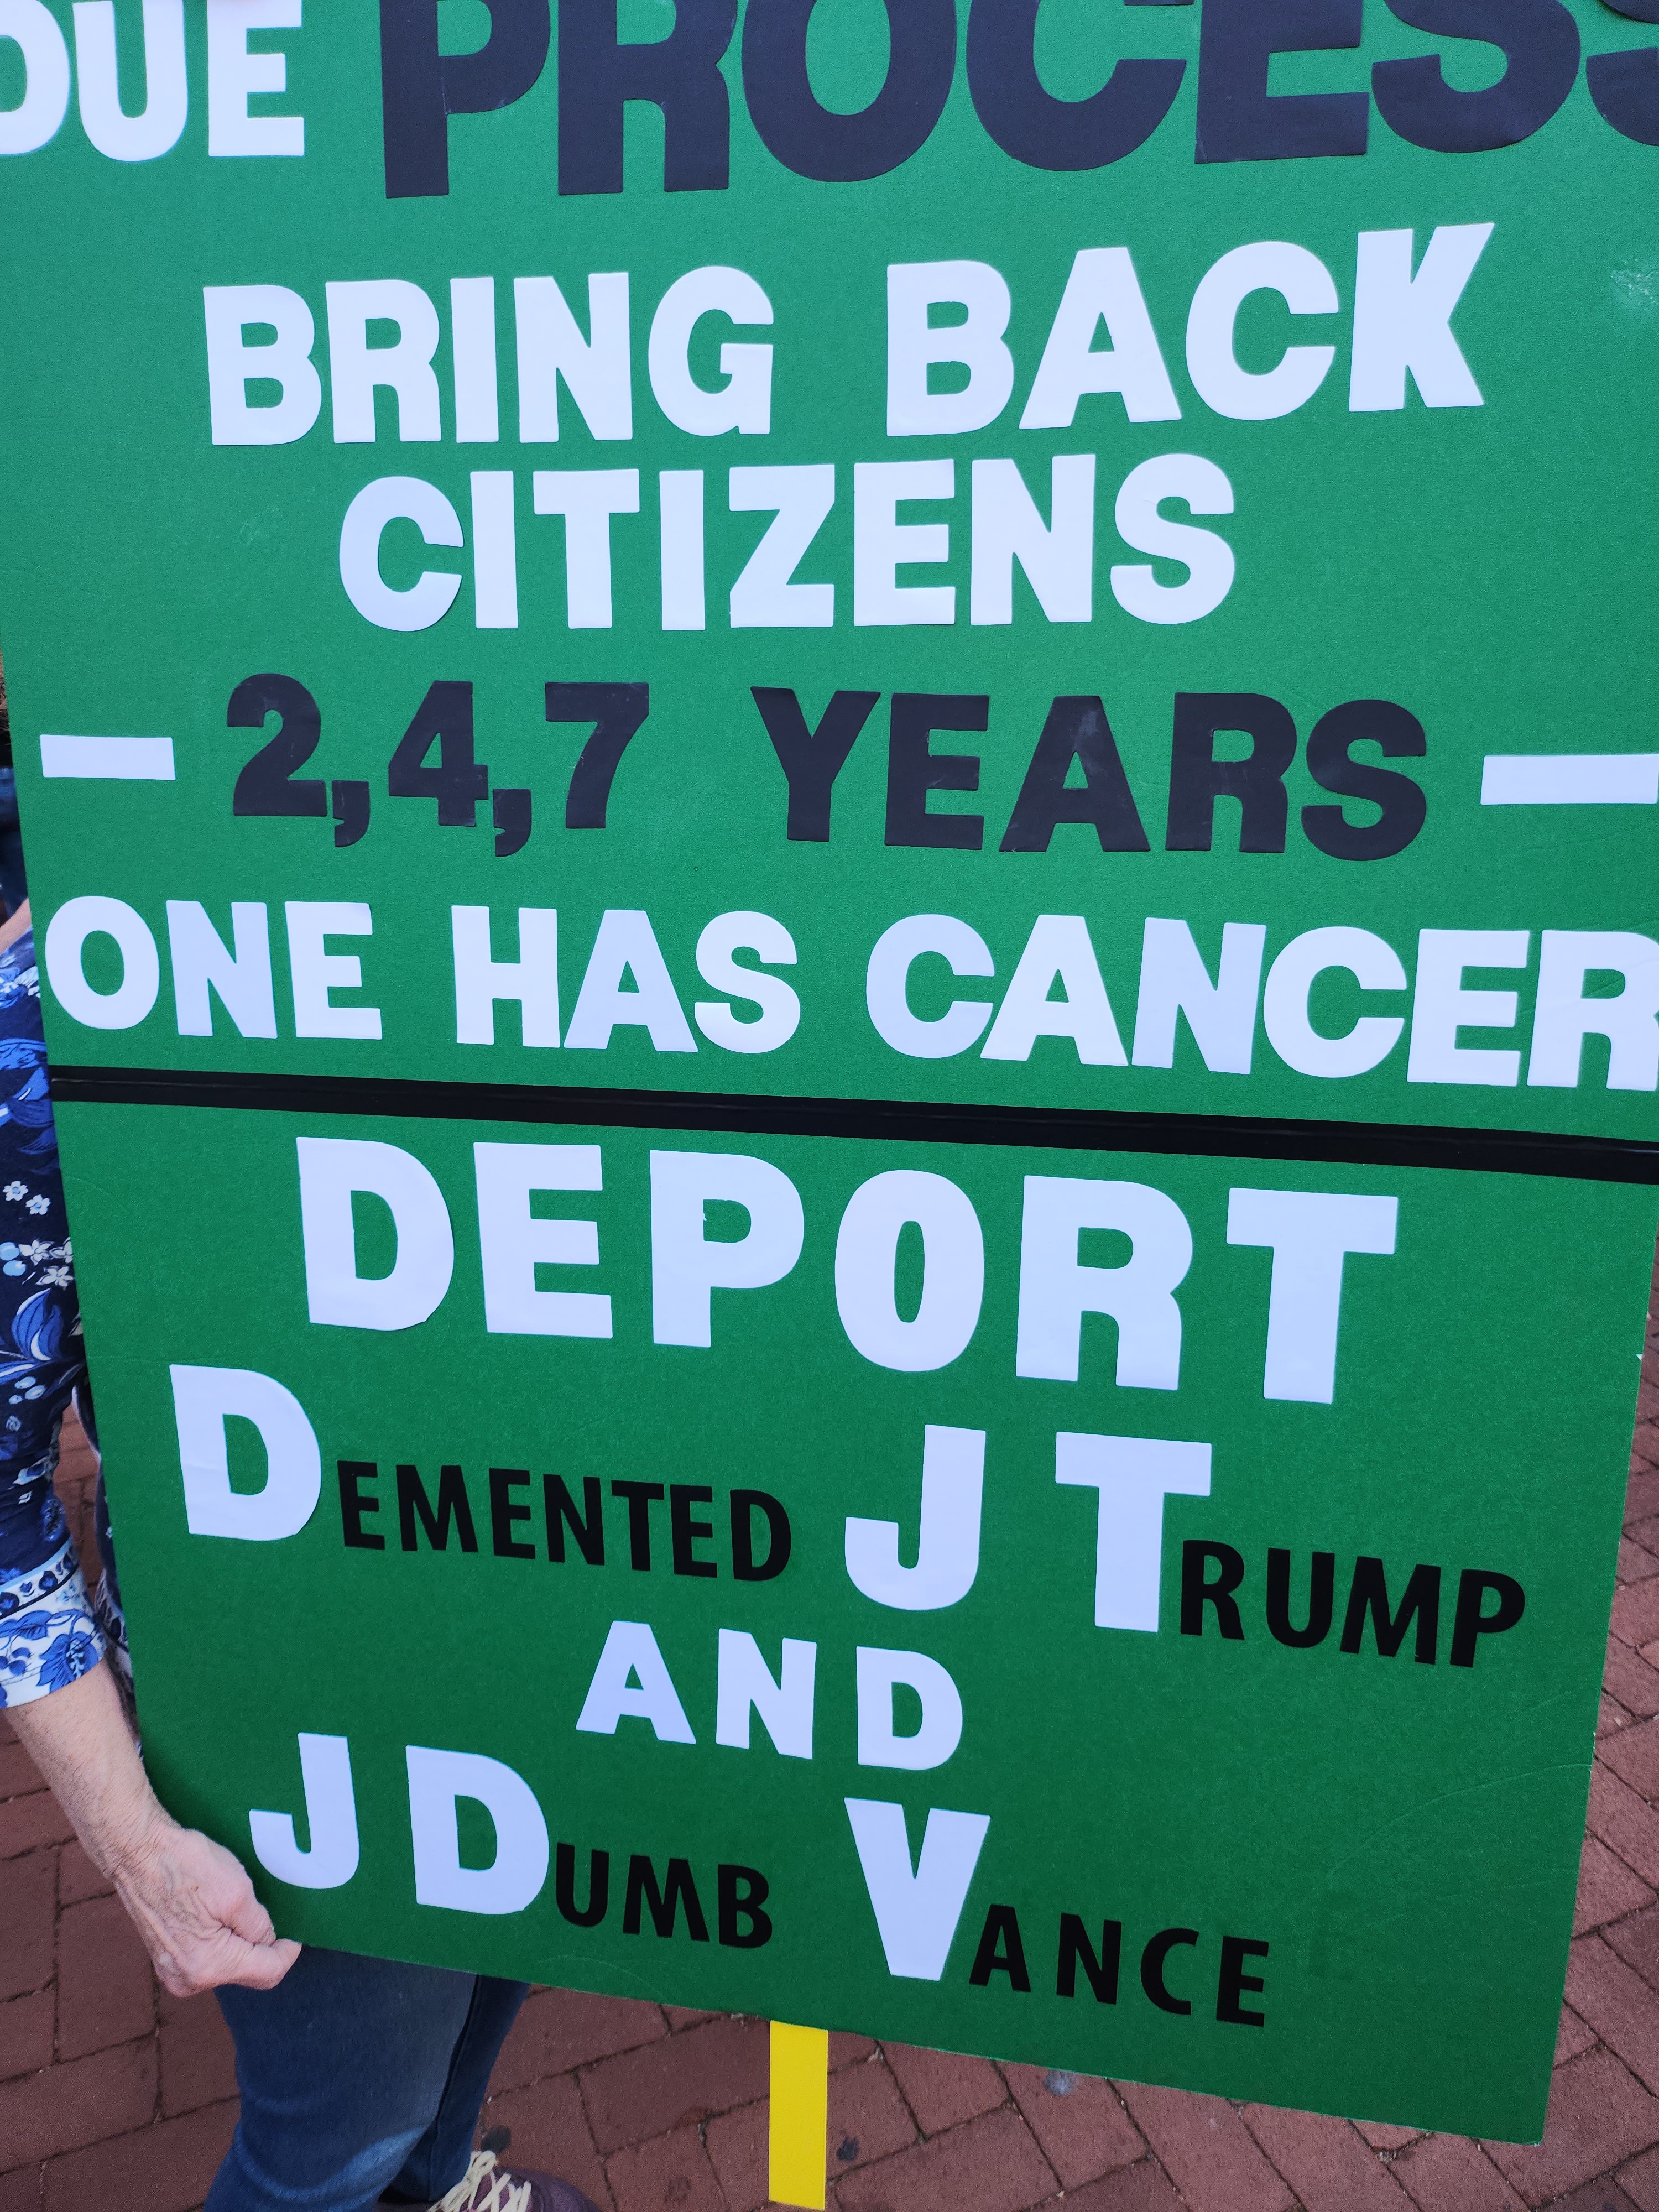 DUE PROCESS
BRING BACK
CITIZENS
— 2,4,7 YEARS —
ONE HAS CANCER
DEPORT
DEMENTED J TRUMP
AND
J DUMB VANCE